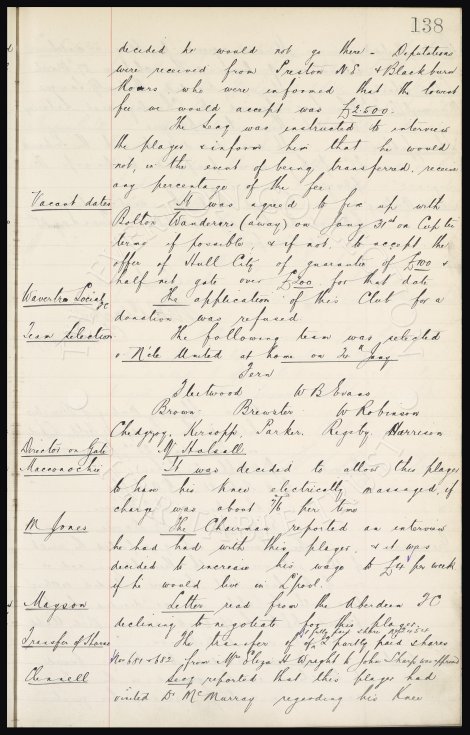 138
decided he would not go there - Deputations
were received from Preston N E & Blackburn
Rovers, who were informed that the lowest
fee we would accept was £2.500.
The Secy was instructed to interview
the player & inform him that he would
not, in the event of being transferred, receive
any percentage of the fee.
Vacant dates It was agreed to fix up with
Bolton Wanderers (away) on Jany 31st on Cup tie
terms if possible, & if not, to accept the
offer of Hull City of guarantee of £100 &
half net gate over £200 for that date
Wavertree Social FC The application of this Club for a
donation was refused
Team Selection The following team was selected
v. N'cle United at home on 20th Jany
Fern
Fleetwood W B Evans
Brown. Brewster. W Robinson
Chedgzoy. Kirsopp. Parker. Rigsby Harrison
Director on Gate Mr Halsall.
Macconachie It was decided to allow this player
to have his knee electrically massaged, if
charge was about 7/6 per time
M Jones The Chairman reported an interview
he had had with this player, & it was
decided to increase his wage to £4 per week
if he would live in L'pool.
Mayson Letter read from the Aberdeen FC
declining to negotiate for this player.
1 fully paid share No 2454
Transfer of Shares The transfer of 2 partly paid shares
Nos 681 & 682 from Mrs Eliza A Wright to John Sharp was approved
Clennell Secy reported that this player had
visited Dr McMurray regarding his knee